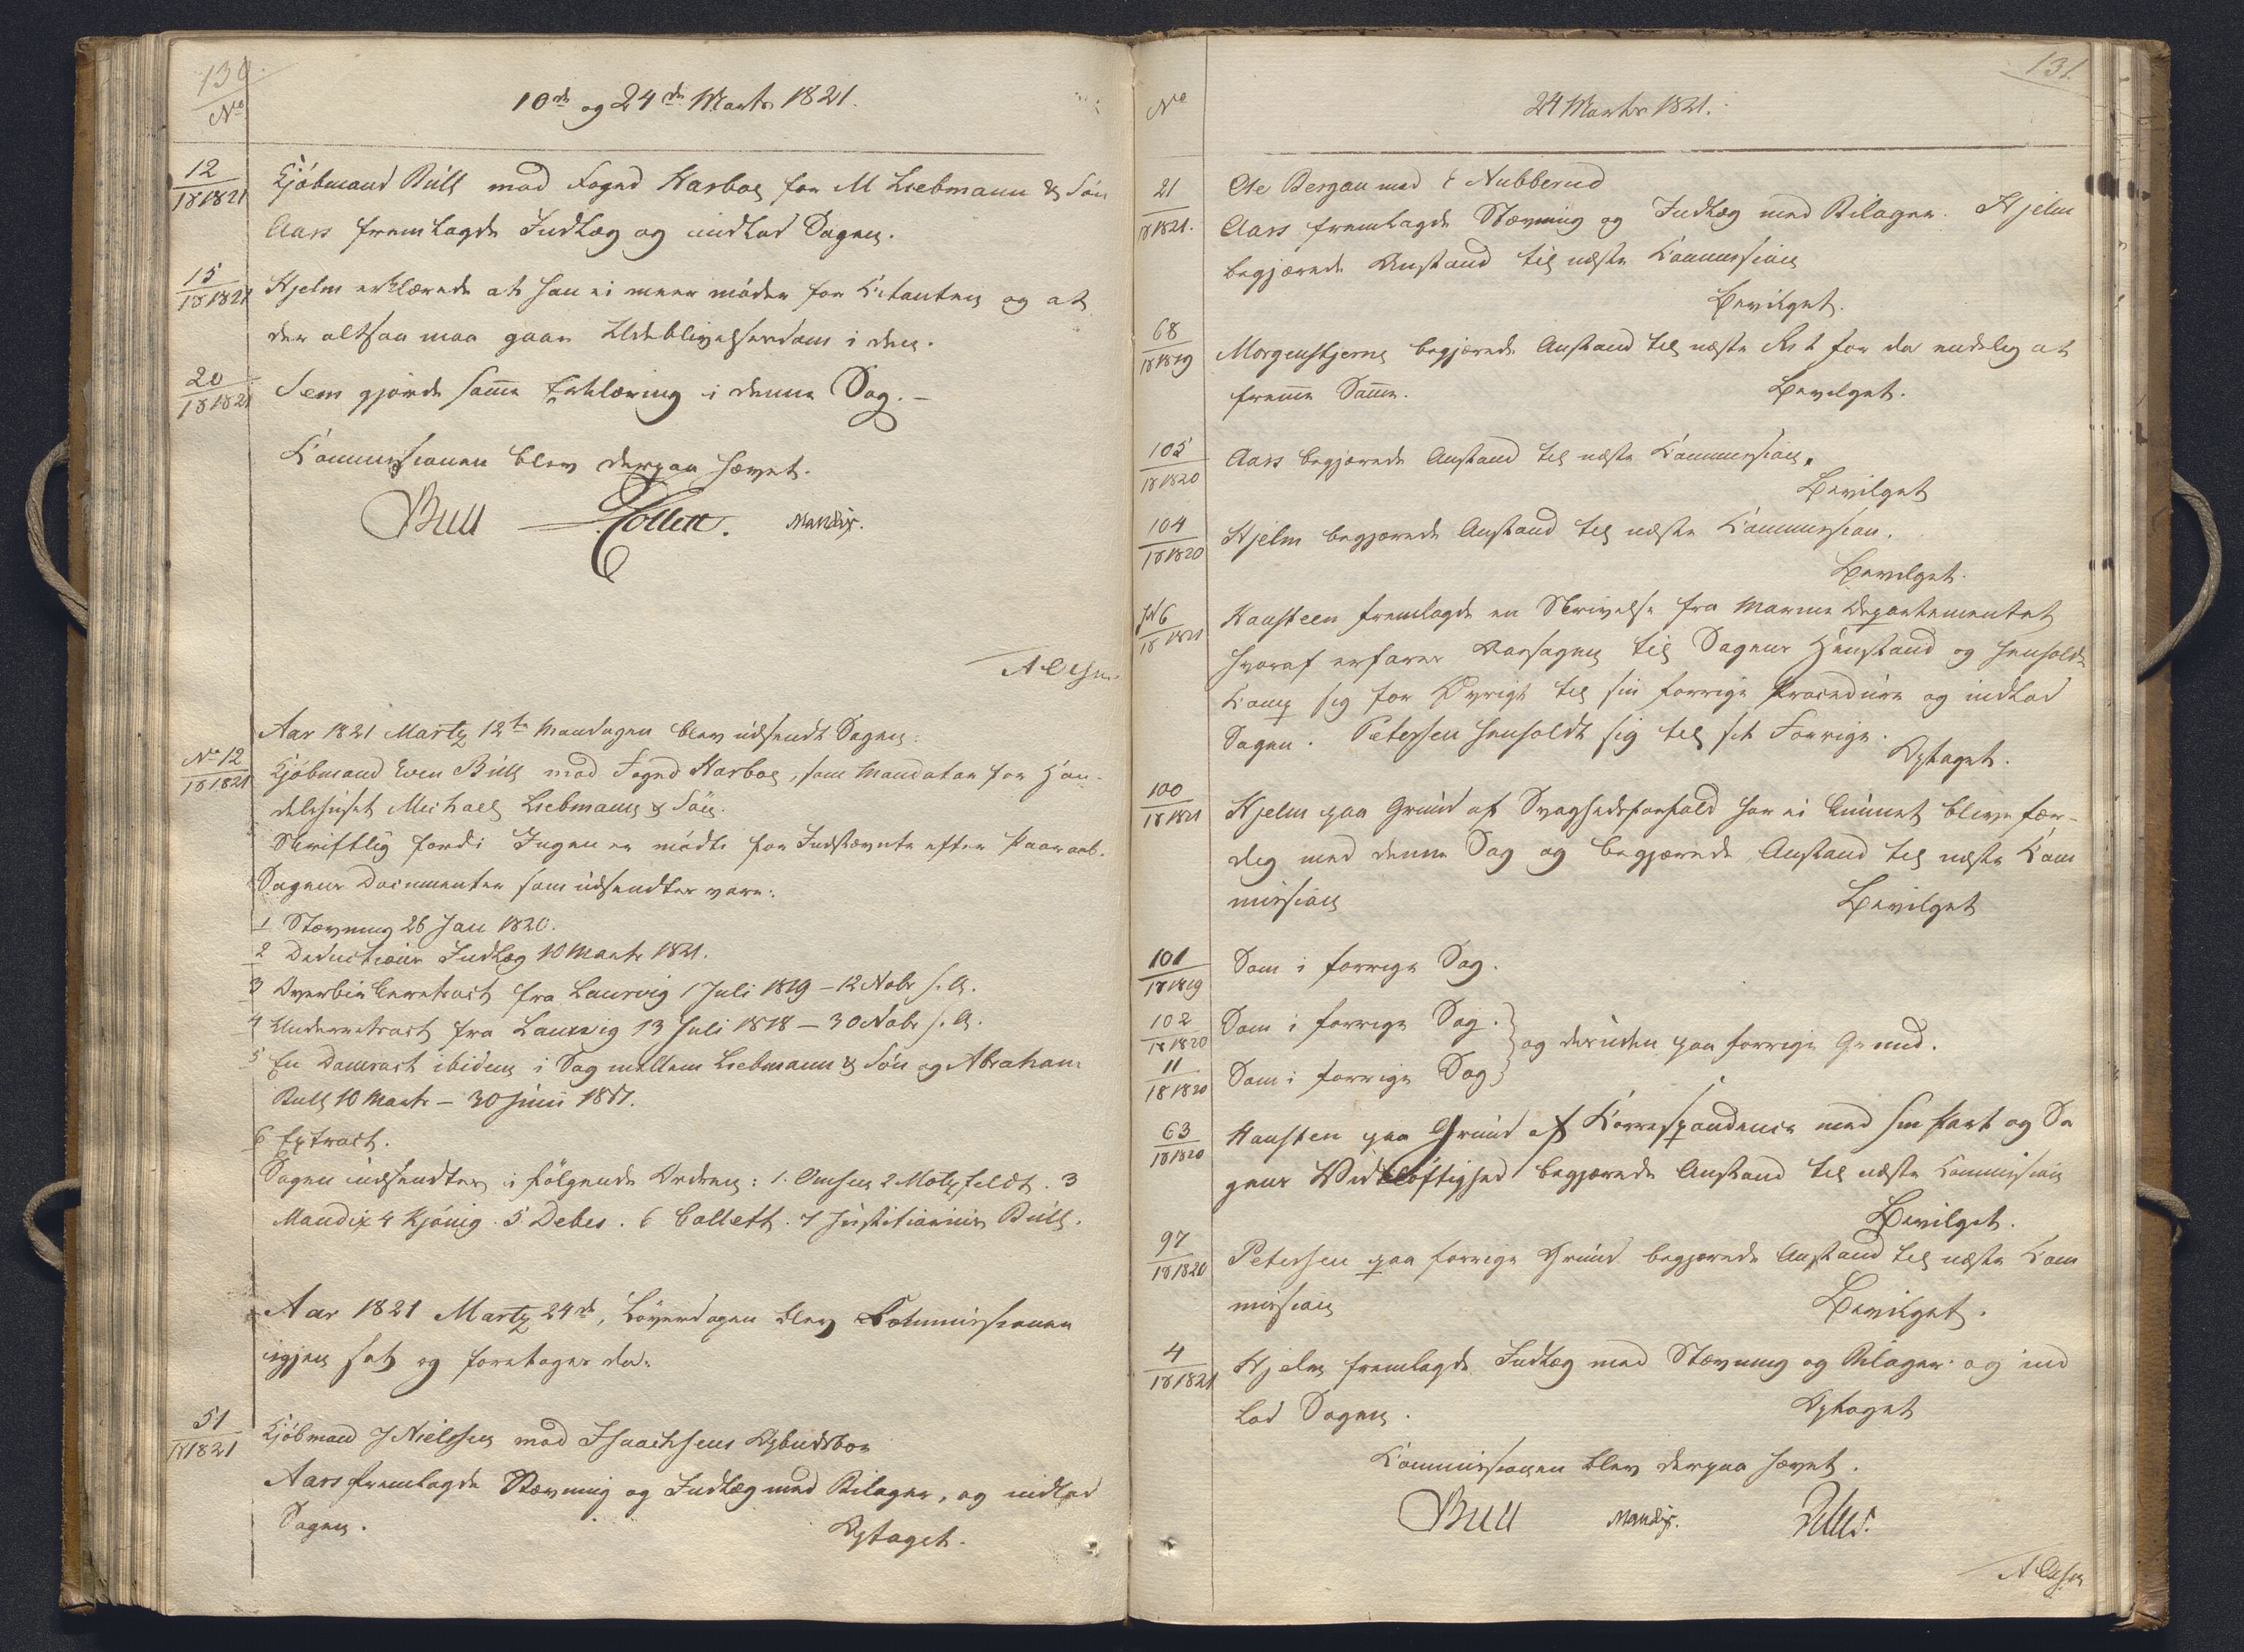 130.
No
10de og 24de Marts 1821.
12
18 1821
Kjöbmand Bull mod Foged Harboe for M Liebmann & Sön
Aars fremlagde Indlæg og indlod Sagen.
15
18 1821
Hjelm erklærede at han ei meer möder for Citanten og at
der altsaa maa gaae Udeblivelsesdom i den.
20
18 1821
Sem gjorde samme Erklæring i denne Sag. –
Commissionen blev derpaa hævet.
Bull Collett. Mandix.
Aar 1821 Martz 12te Mandagen blev udsendt Sagen:
No 12
18 1821
Kjöbmand Even Bull mod Foged Harboe, som Mandatar for Han-
delshuset Michael Liebmann & Sön.
Skriftlig fordi Ingen er mödt for Indstævnte efter Paaraab.
Sagens Documenter som udsendtes vare:
1 Stævning 26 Jan 1820.
2 Deductions Indlæg 10 Marts 1821.
3 Overbir Extract fra Laurvig 1 Juli 1819 – 12 Nobr s. A.
4 Underretsact fra Laurvig 13 Juli 1818 – 30 Nobr s. A.
5 En Domsact ibidem i Sag mellem Liebmann & Sön og Abraham
Bull 10 Marts – 30 Junii 1817.
6 Extract.
Sagen udsendtes i fölgende Orden: 1. Omsen 2 Motzfeldt. 3
Mandix 4 Kjönig. 5 Debes. 6 Collett. 7 Justitiarius Bull.
Aar 1821 Martz 24de, Löverdagen blev Commissionen
igjen sat og foretoges da:
51
18 1821
Kjöbmand J Nielsen mod Isaachsens Opbudsboe
Aars fremlagde Stævning og Indlæg med Bilager, og indlod
Sagen. Optaget.
131.
No
24 Marts 1821.
21
18 1821.
Ole Bergan mod E Nubberud
Aars fremlagde Stævning og Indlæg med Bilager. Hjelm
begjærede Anstand til næste Commission
Bevilget.
68
18 1819
Morgenstjerne begjærede Anstand til næste Ret for da endelig at
fremme Samme. Bevilget.
105
18 1820
Aars begjærede Anstand til næste Commission.
Bevilget
104
18 1820
Hjelm begjærede Anstand til næste Commission.
Bevilget.
6
18 1821
Hansteen fremlagde en Skrivelse fra Marine Departementet
hvoraf erfares Aarsagen til Sagens Henstand og henholdt
Comp sig for Övrigt til sin forrige Procedure og indlod
Sagen. Petersen henholdt sig til sit Forrige.
Optaget.
100
18 1821
Hjelm paa Grund af Svaghedsforfald har ei kunnet blive fær-
dig med denne Sag og begjærede Anstand til næste Com
mission Bevilget
101
18 1819
Som i forrige Sag.
102
18 1820
Som i forrige Sag.
11
18 1820
Som i forrige Sag
og desuden paa forrige Grund.
63
18 1820
Hansten paa Grund af Correspondence med sin Part og Sa
gens Vidtlöftighed begjærede Anstand til næste Commission
Bevilget.
97
18 1820
Petersen paa forrige Grund begjærede Anstand til næste Com
mission Bevilget.
4
18 1821
Hjelm fremlagde Indlæg med Stævning og Bilager og ind
lod Sagen. Optaget
Commissionen blev derpaa hævet.
Bull Mandix.